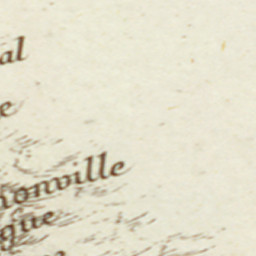 al
e
onville
gue